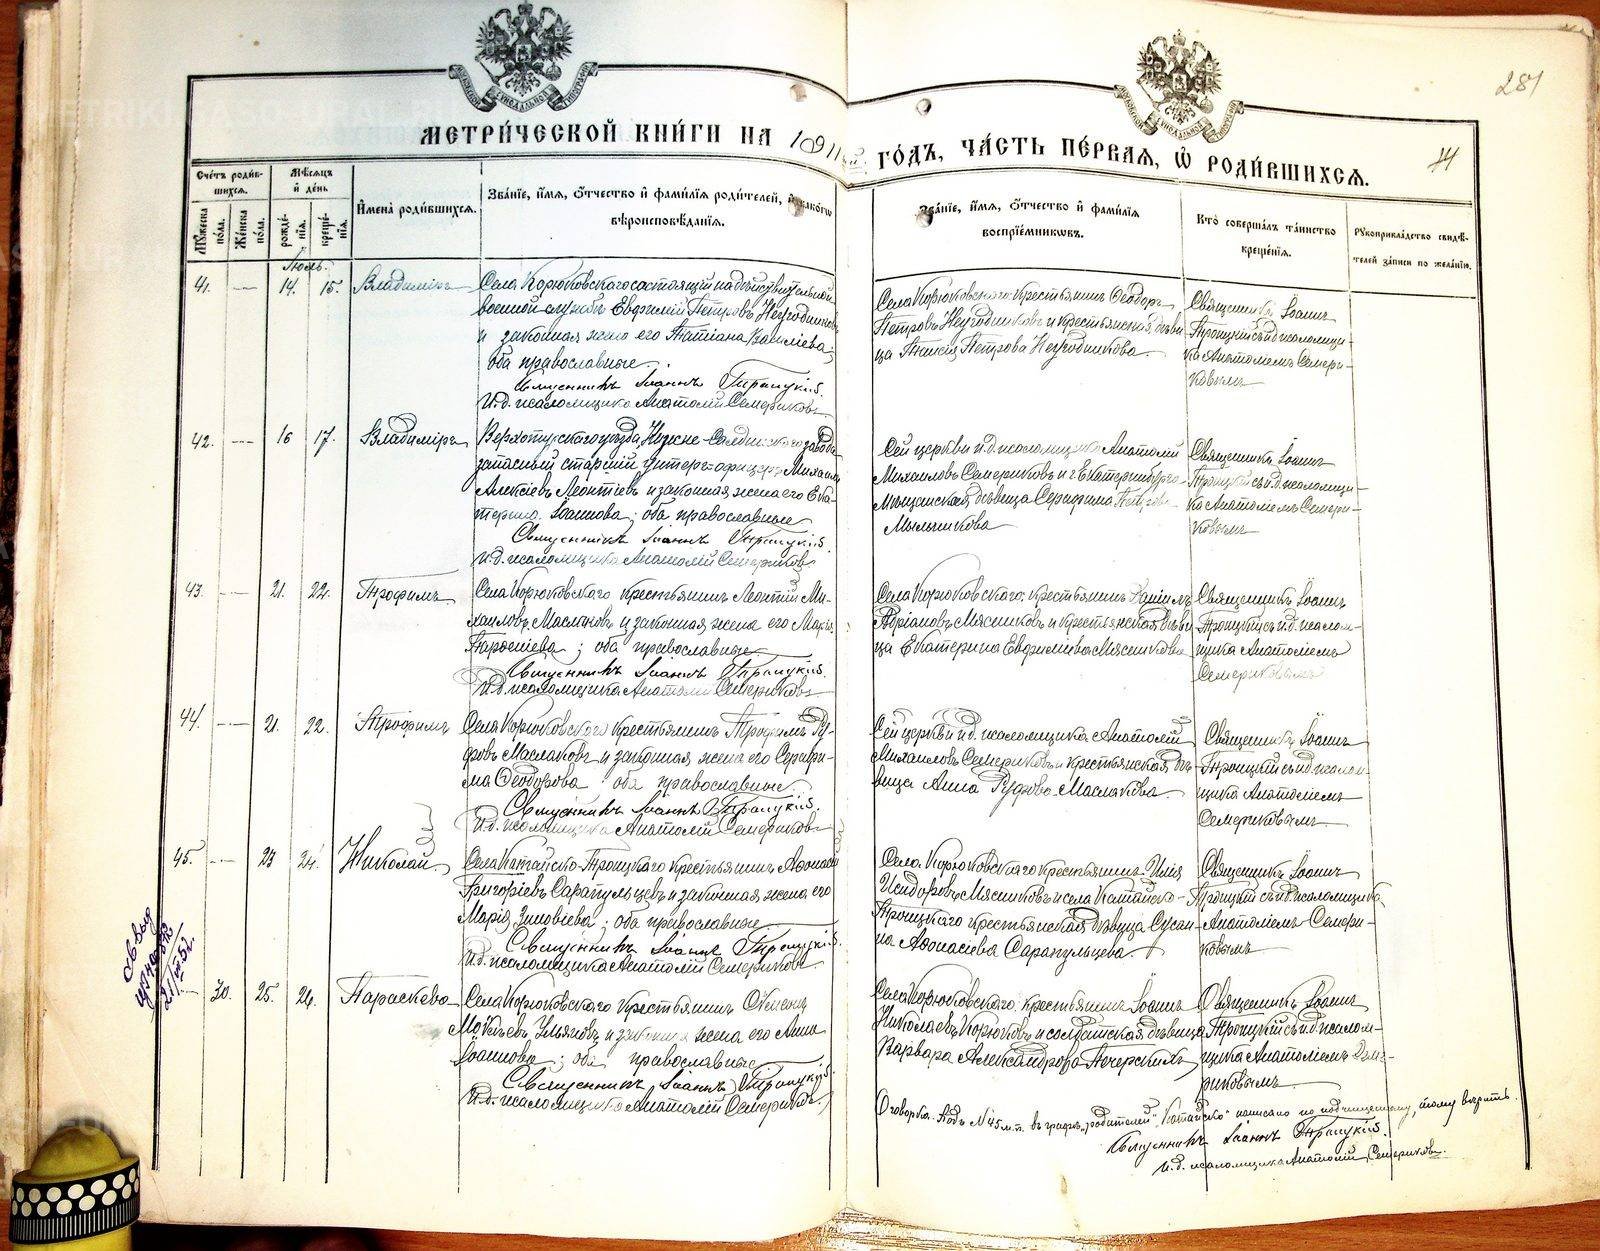 281
МЕТРИ́ЧЕСКОЙ КНИ́ГИ НА 1911й ГО́ДЪ, ЧА́СТЬ ПЕ́РВАЯ, Ѡ РОДИ́ВШИХСЯ.
Сче́тъ роди́в-
шихся.
Мѣ́сяцъ
и́ де́нь
Мꙋ́жеска
по́ла.
Же́нска
по́ла.
рожде́-
нїя.
креще́-
нїя.
И҆мена̀ роди́вшихся.
Зва́нїе, и҆́мя, ѻ҆́тчество и҆ фами́лїя роди́телей, и҆ како́гѡ
вѣроисповѣ́данїя.
Зва́нїе, и҆́мя, ѻ҆́тчество и҆ фами́лїя
воспрїе́мникѡвъ.
Кто̀ соверша́лъ та́инство
креще́нїя.
Рꙋкоприкла́дство свидѣ́-
телей за́писи по жела́нїю.
Іюль.
41. — 14. 15. Владиміръ
Села Корюковскаго состоящій на дѣйствительной
военной службѣ Евѳимій Петровъ Неугодниковъ
и законная жена его Татіана Василіева;
оба православные.
Священникъ Іоаннъ Троицкій.
И.д. псаломщика Анатолій Семериковъ.
Села Корюковскаго крестьянинъ Ѳеодоръ
Петровъ Неугодниковъ и крестьянская дѣви-
ца Анисія Петрова Неугодникова.
Священникъ Іоаннъ
Троицкій съ и.д. псаломщи-
ка Анатоліемъ Семери-
ковымъ
42. — 16 17. Владиміръ
Верхотурскаго уѣзда, Нижне-Салдинскаго завода
запасный старшій унтеръ-офицеръ Михаилъ
Алексіевъ Леонтіевъ и законная жена его Ека-
терина Іоаннова; оба православные
Священникъ Іоаннъ Троицкій.
И.д. псаломщика Анатолій Семериковъ
Сей церкви и.д. псаломщика Анатолій
Михаиловъ Семериковъ и г. Екатеринбурга
мѣщанская дѣвица Серафима Петрова
Мыльникова
Священникъ Іоаннъ
Троицкій съ и.д. псаломщи-
ка Анатоліемъ Семери-
ковымъ
43. — 21. 22. Трофимъ
Села Корюковскаго крестьянинъ Леонтій Ми-
хаиловъ Масляковъ и законная жена его Марія
; оба православные.
Священникъ Іоаннъ Троицкій.
И.д. псаломщика Анатолій Семериковъ
Села Корюковскаго крестьянинъ Даніилъ
Адріановъ Мясниковъ и крестьянская дѣви-
ца Екатерина Евфимова Мясникова
Священникъ Іоаннъ
Троицкій съ и.д. псалом-
щика Анатоліемъ
Семериковымъ
44. — 21. 22. Трофимъ
Села Корюковскаго крестьянинъ Трофимъ Ру-
фовъ Масляковъ и законная жена его Серафи-
ма Ѳеодорова; оба православные.
Священникъ Іоаннъ Троицкій.
И.д. псаломщика Анатолій Семериковъ
Сей церкви и.д. псаломщика Анатолій
Михаиловъ Семериковъ и крестьянская дѣ-
вица Анна Руфова Маслакова.
Священникъ Іоаннъ
Троицкій съ и.д. псалом-
щика Анатоліемъ
Семериковымъ
45. — 23 24. Николай.
Села Катайско-Троицкаго крестьянинъ Аѳонасій
Григоріевъ Сарапульцевъ и законная жена его
Марія Зиновіева; оба православные
Священникъ Іоаннъ Троицкій.
И.д. псаломщика Анатолій Семериковъ.
Села Корюковскаго крестьянинъ Илія
Исидоровъ Мясниковъ и села Катайско-
Троицкаго крестьянская дѣвица Сусан-
на Аѳонасіева Сарапульцева.
Священникъ Іоаннъ
Троицкій съ и.д. псаломщика
Анатоліемъ Семери-
ковымъ
— 30. 25. 26. Параскева
Села Корюковскаго крестьянинъ Симеонъ
и законная жена его Анна
Іоаннова; оба православные
Священникъ Іоаннъ Троицкій
И.д. псаломщика Анатолій Семериковъ.
Села Корюковскаго крестьянинъ Іоаннъ
Николаевъ Корюковъ и солдатская дѣвица
Варвара Александрова
Священникъ Іоаннъ
Троицкій съ и.д. псалом-
щика Анатоліемъ Семе-
риковымъ
Оговорка. Подъ №45 м.п. въ графѣ „родителей" „Катайско" написано по подчищенному, тому вѣрить.
Священникъ Іоаннъ Троицкій.
И.д. псаломщика Анатолій Семериковъ.